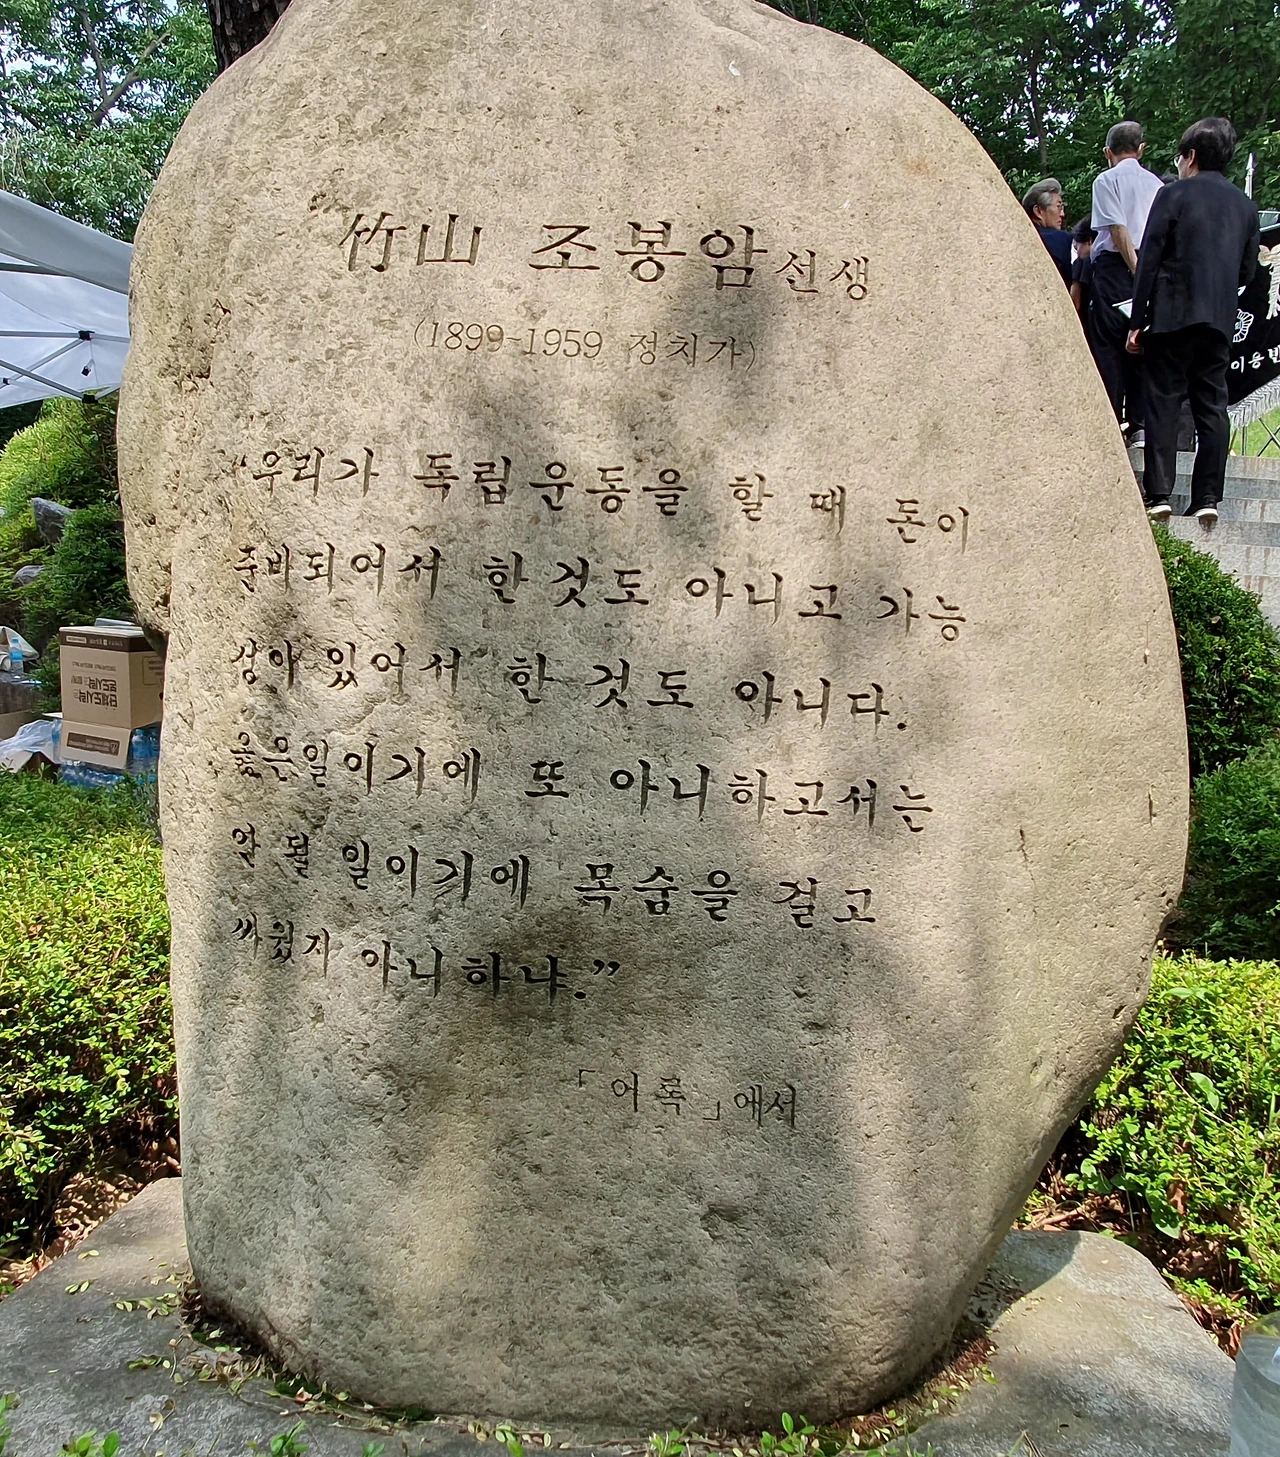 竹山 조봉암선생
(1899-1959 정치가)
“우리가 독립운동을 할 때 돈이
준비되어서 한것도 아니고 가능
성이 있어서 한 것도 아니다.
옳은일이기에 또 아니하고서는
안 될 일이기에 목숨을 걸고
싸웠지 아니하냐.”
「어록」에서
단체도시락은
본도시락